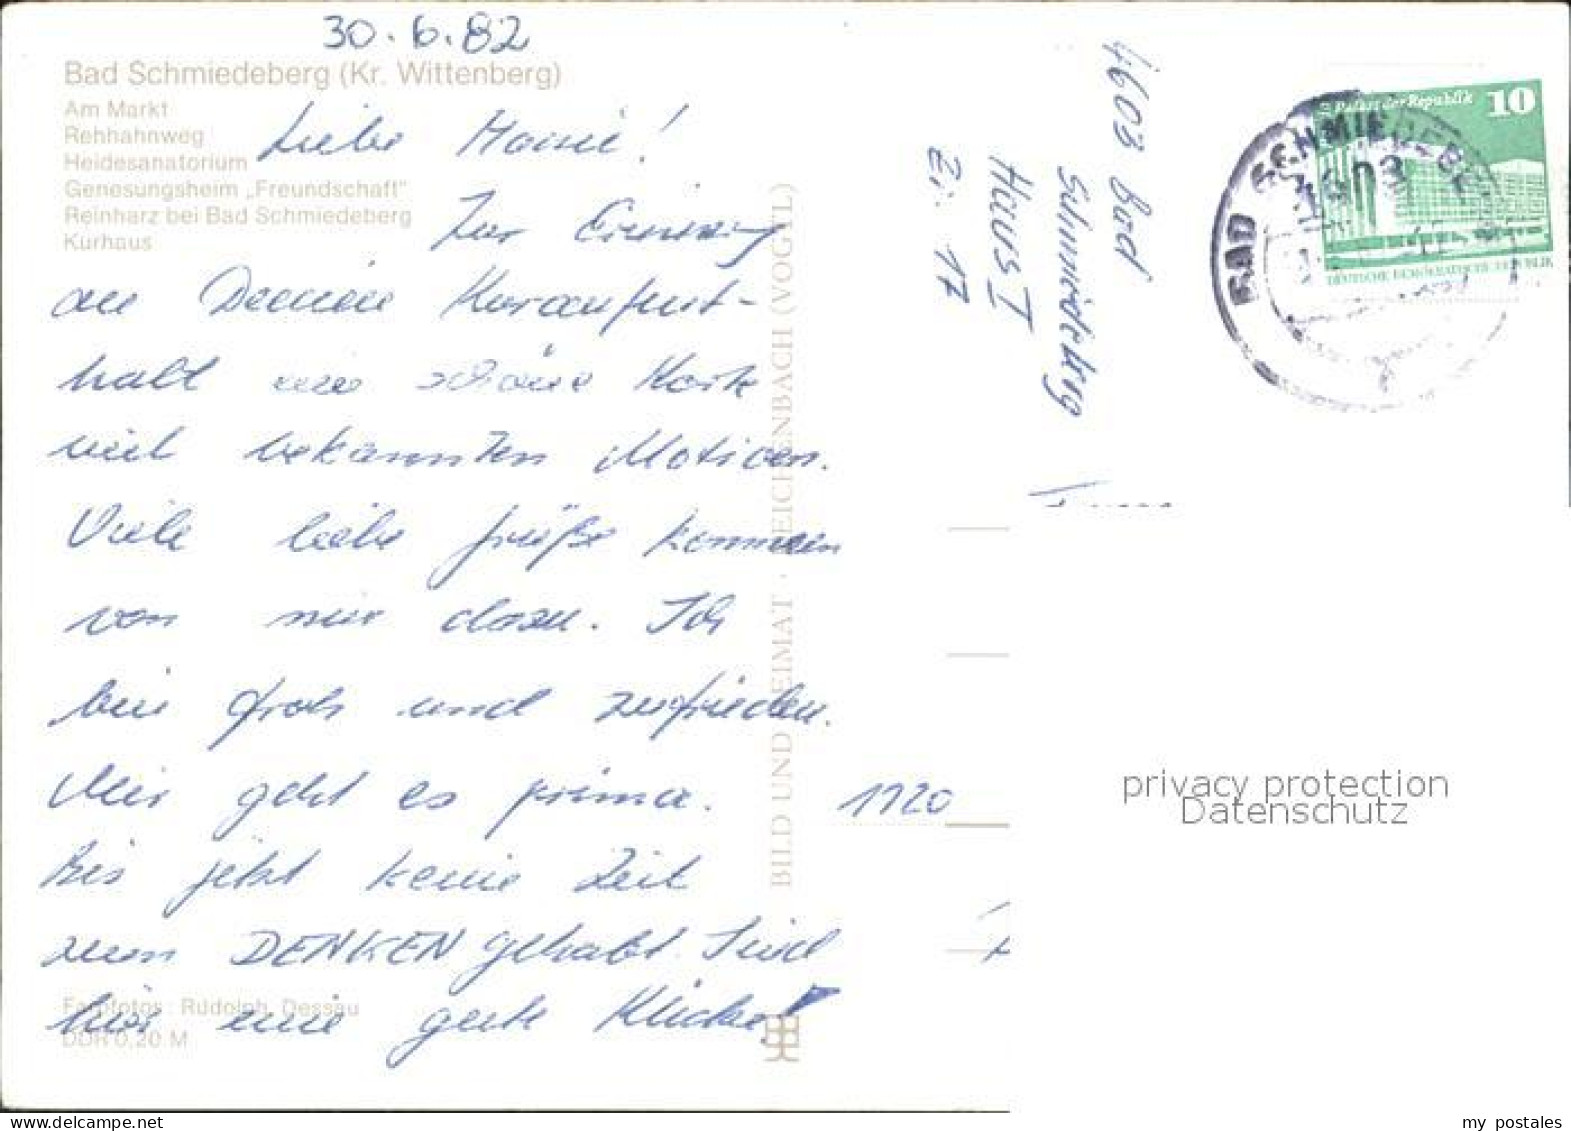 30.6.82
Bad Schmiedeberg (Kr. Wittenberg)
Am Markt
Rehhahnweg
Heidesanatorium
Genesungsheim „Freundschaft"
Reinharz bei Bad Schmiedeberg
Kurhaus
Liebe !
Zur
an Deinen Koraufent-
halt eine schöne Karte
mit bekannten Motiven.
Viele liebe Grüße kommen
von mir dazu. Ich
bin froh und zufrieden.
Mir geht es prima.
Bis jetzt keine Zeit
zum DENKEN gehabt. Sind
hier eine gute Klicke!
Farbfotos: Rudolph, Dessau
DDR 0,20 M
BILD UND HEIMAT · REICHENBACH (VOGTL)
1120
4603 Bad
Schmiedeberg
Haus I
Zi. 17
Palast der Republik 10
DEUTSCHE DEMOKRATISCHE REPUBLIK
BAD SCHMIEDEBE
4603
privacy protection
Datenschutz
my postales